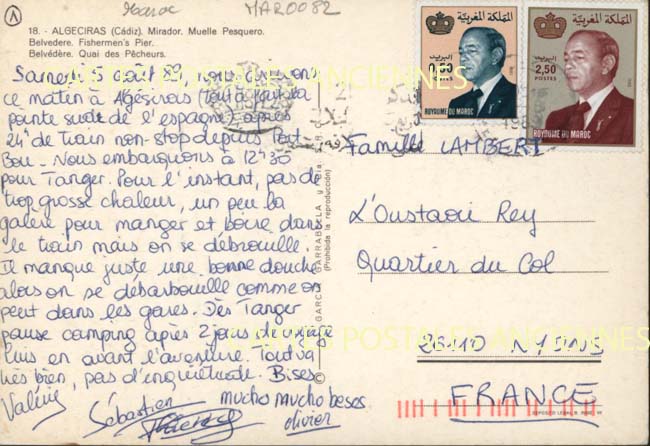 Maroc
MAR00 82
18. - ALGECIRAS (Cádiz). Mirador. Muelle Pesquero.
Belvedere. Fishermen's Pier.
Belvédère. Quai des Pêcheurs.
Samedi août nous arrivons
ce matin à Algésiras (tout à fait la
pointe sud de l'espagne) après
24h de train non-stop depuis Port
Bou - Nous embarquons à 12h30
pour Tanger. Pour l'instant, pas de
trop grosse chaleur, un peu la
galère pour manger et boire dans
le train mais on se débrouille.
Il manque juste une bonne douche
alors on se débarbouille comme on
peut dans les gares. Dès Tanger
pause camping après 2 jours de
puis en avant l'aventure. Tout va
très bien, pas d'inquiétude. Bises
Valérie
Sébastien
mucho mucho besos
olivier
GARCIA GARRABELLA y Cia
(Prohibida la reproducción)
المملكة المغربية
البريد
0,50
POSTES
ROYAUME DU MAROC
المملكة المغربية
البريد
2,50
POSTES
ROYAUME DU MAROC
Famille LAMBERT
L'Oustaou Rey
Quartier du Col
26110 NYONS
FRANCE
CARTES POSTALES ANCIENNES
CARTES POSTALES ANCIENNES